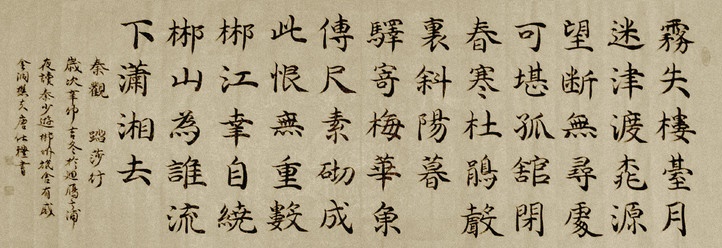 霧失樓臺月
迷津渡桃源
望断無尋處
可堪孤舘閉
春寒杜鵑聲
裏斜陽暮
驛寄梅華魚
傳尺素砌成
此恨無重數
郴江幸自繞
郴山為誰流
下瀟湘去
秦觀 踏莎行
歲次辛卯吉冬於迴鴈之浦
夜讀秦少遊郴州旅舍有感
唐仕橙書